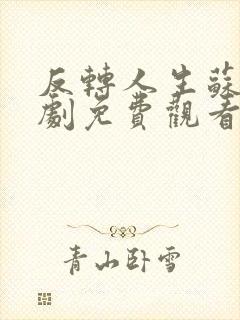 反轉人生蘇
劇免費觀看
青山卧雪